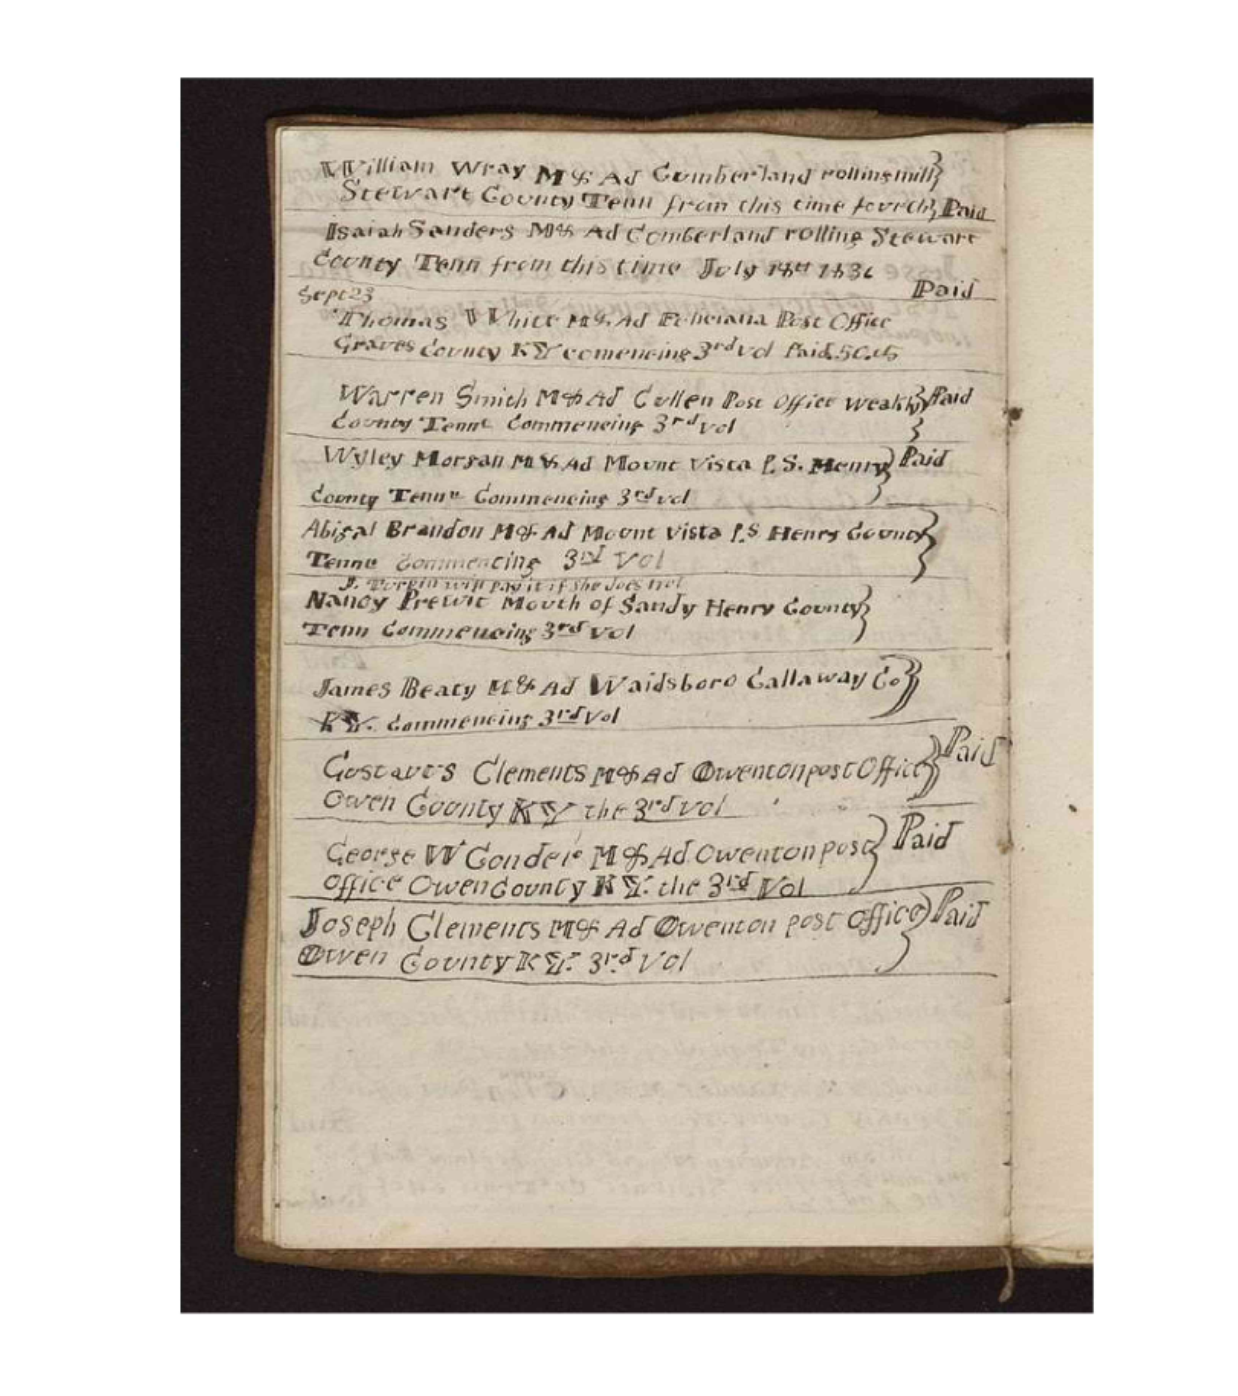 William Wray M & Ad Cumberland rolling mill
Stewart County Tenn from this time fourth Paid
Isaiah Sanders M & Ad Comberland rolling Stewart
County Tenn from this time July 18th 1836
Paid
Sept 23
Thomas White M & Ad Feliciana Post Office
Graves County KY comencing 3rd vol Paid 50 cts
Warren Smith M & Ad Cullen Post Office Weakly Paid
County Tenne Commencing 3rd vol
Wyley Morgan M & Ad Mount Vista P. S. Henry Paid
County Tenne Commencing 3rd vol
Abigal Brandon M & Ad Mount Vista P. S Henry County
Tenne Commencing 3rd Vol
J. Turpin will pay it if she does not
Nancy Prewit Mouth of Sandy Henry County
Tenn Commencing 3rd Vol
James Beaty M & Ad Waidsboro Callaway Co
KY. Commencing 3rd Vol
Gustavus Clements M & Ad Owenton post Office Paid
Owen County KY the 3rd vol
George W Gonder M & Ad Owenton post Paid
office Owen County KY. the 3rd Vol
Joseph Clements M & Ad Owenton post office Paid
Owen County KY. 3rd Vol